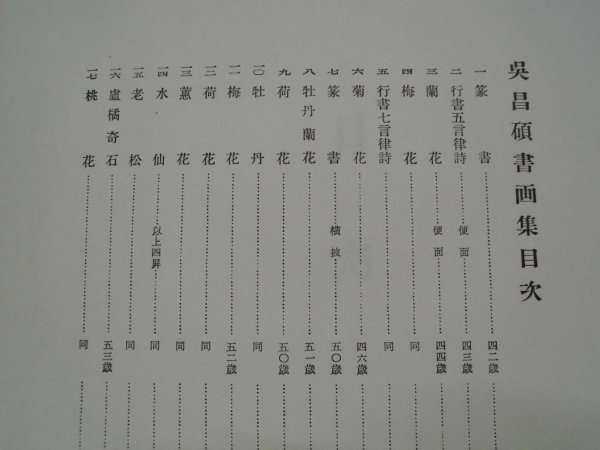 吳昌碩書画集目次
一 篆書……四二歳……
二 行書五言律詩……便面……四三歳……
三 蘭花……便面……四四歳……
四 梅花……同……
五 行書七言律詩……同……
六 菊花……四六歳……
七 篆書……横披……五〇歳……
八 牡丹蘭花……五一歳……
九 荷花……五〇歳……
一〇 牡丹……同……
一一 梅花……五二歳……
一二 荷花……同……
一三 蕙花……同……
一四 水仙……以上四屏……同……
一五 老松……同……
一六 盧橘奇石……五三歳……
一七 桃花……同……